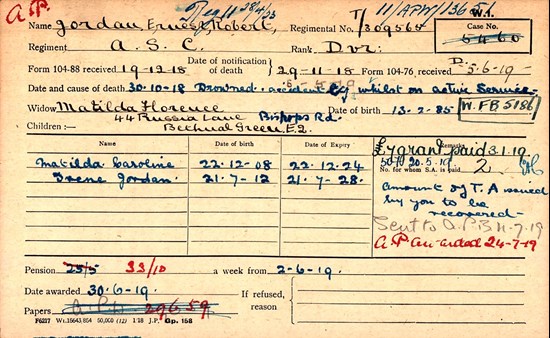 A.P. 28/4/33 11/APW/1136
W.A.
Name Jordan, Ernest Robert, Regimental No. T/309565
Case No.
5460
Regiment A. S. C. Rank Dvr.
Form 104-88 received 19-12-18 Date of notification of death 29-11-18 Form 104-76 received 5-6-19-
Date and cause of death 30-10-18 Drowned accidentally whilst on active service
Widow Matilda Florence Date of birth 13-2-85 W.FB 5186
44 Russia Lane Bishops Rd.
Children:— Bethnal Green. E.2.
Name Date of birth Date of Expiry Remarks
£5 grant paid 3.1.19
20.5.19
No. for whom S.A. is paid 2
Matilda Caroline 22-12-08 22-12-24
Irene Jordan 21-7-12 21-7-28.
Amount of T.A issued
by you to be
recovered-
Sent to 11-7-19
AP awarded 24-7-19
Pension 25/5 33/10 a week from 2-6-19.
Date awarded 30-6-19. If refused, reason
Papers 29659
F6237 Wt.15643.854 50,000 (12) 1/18 J.P. Gp. 168